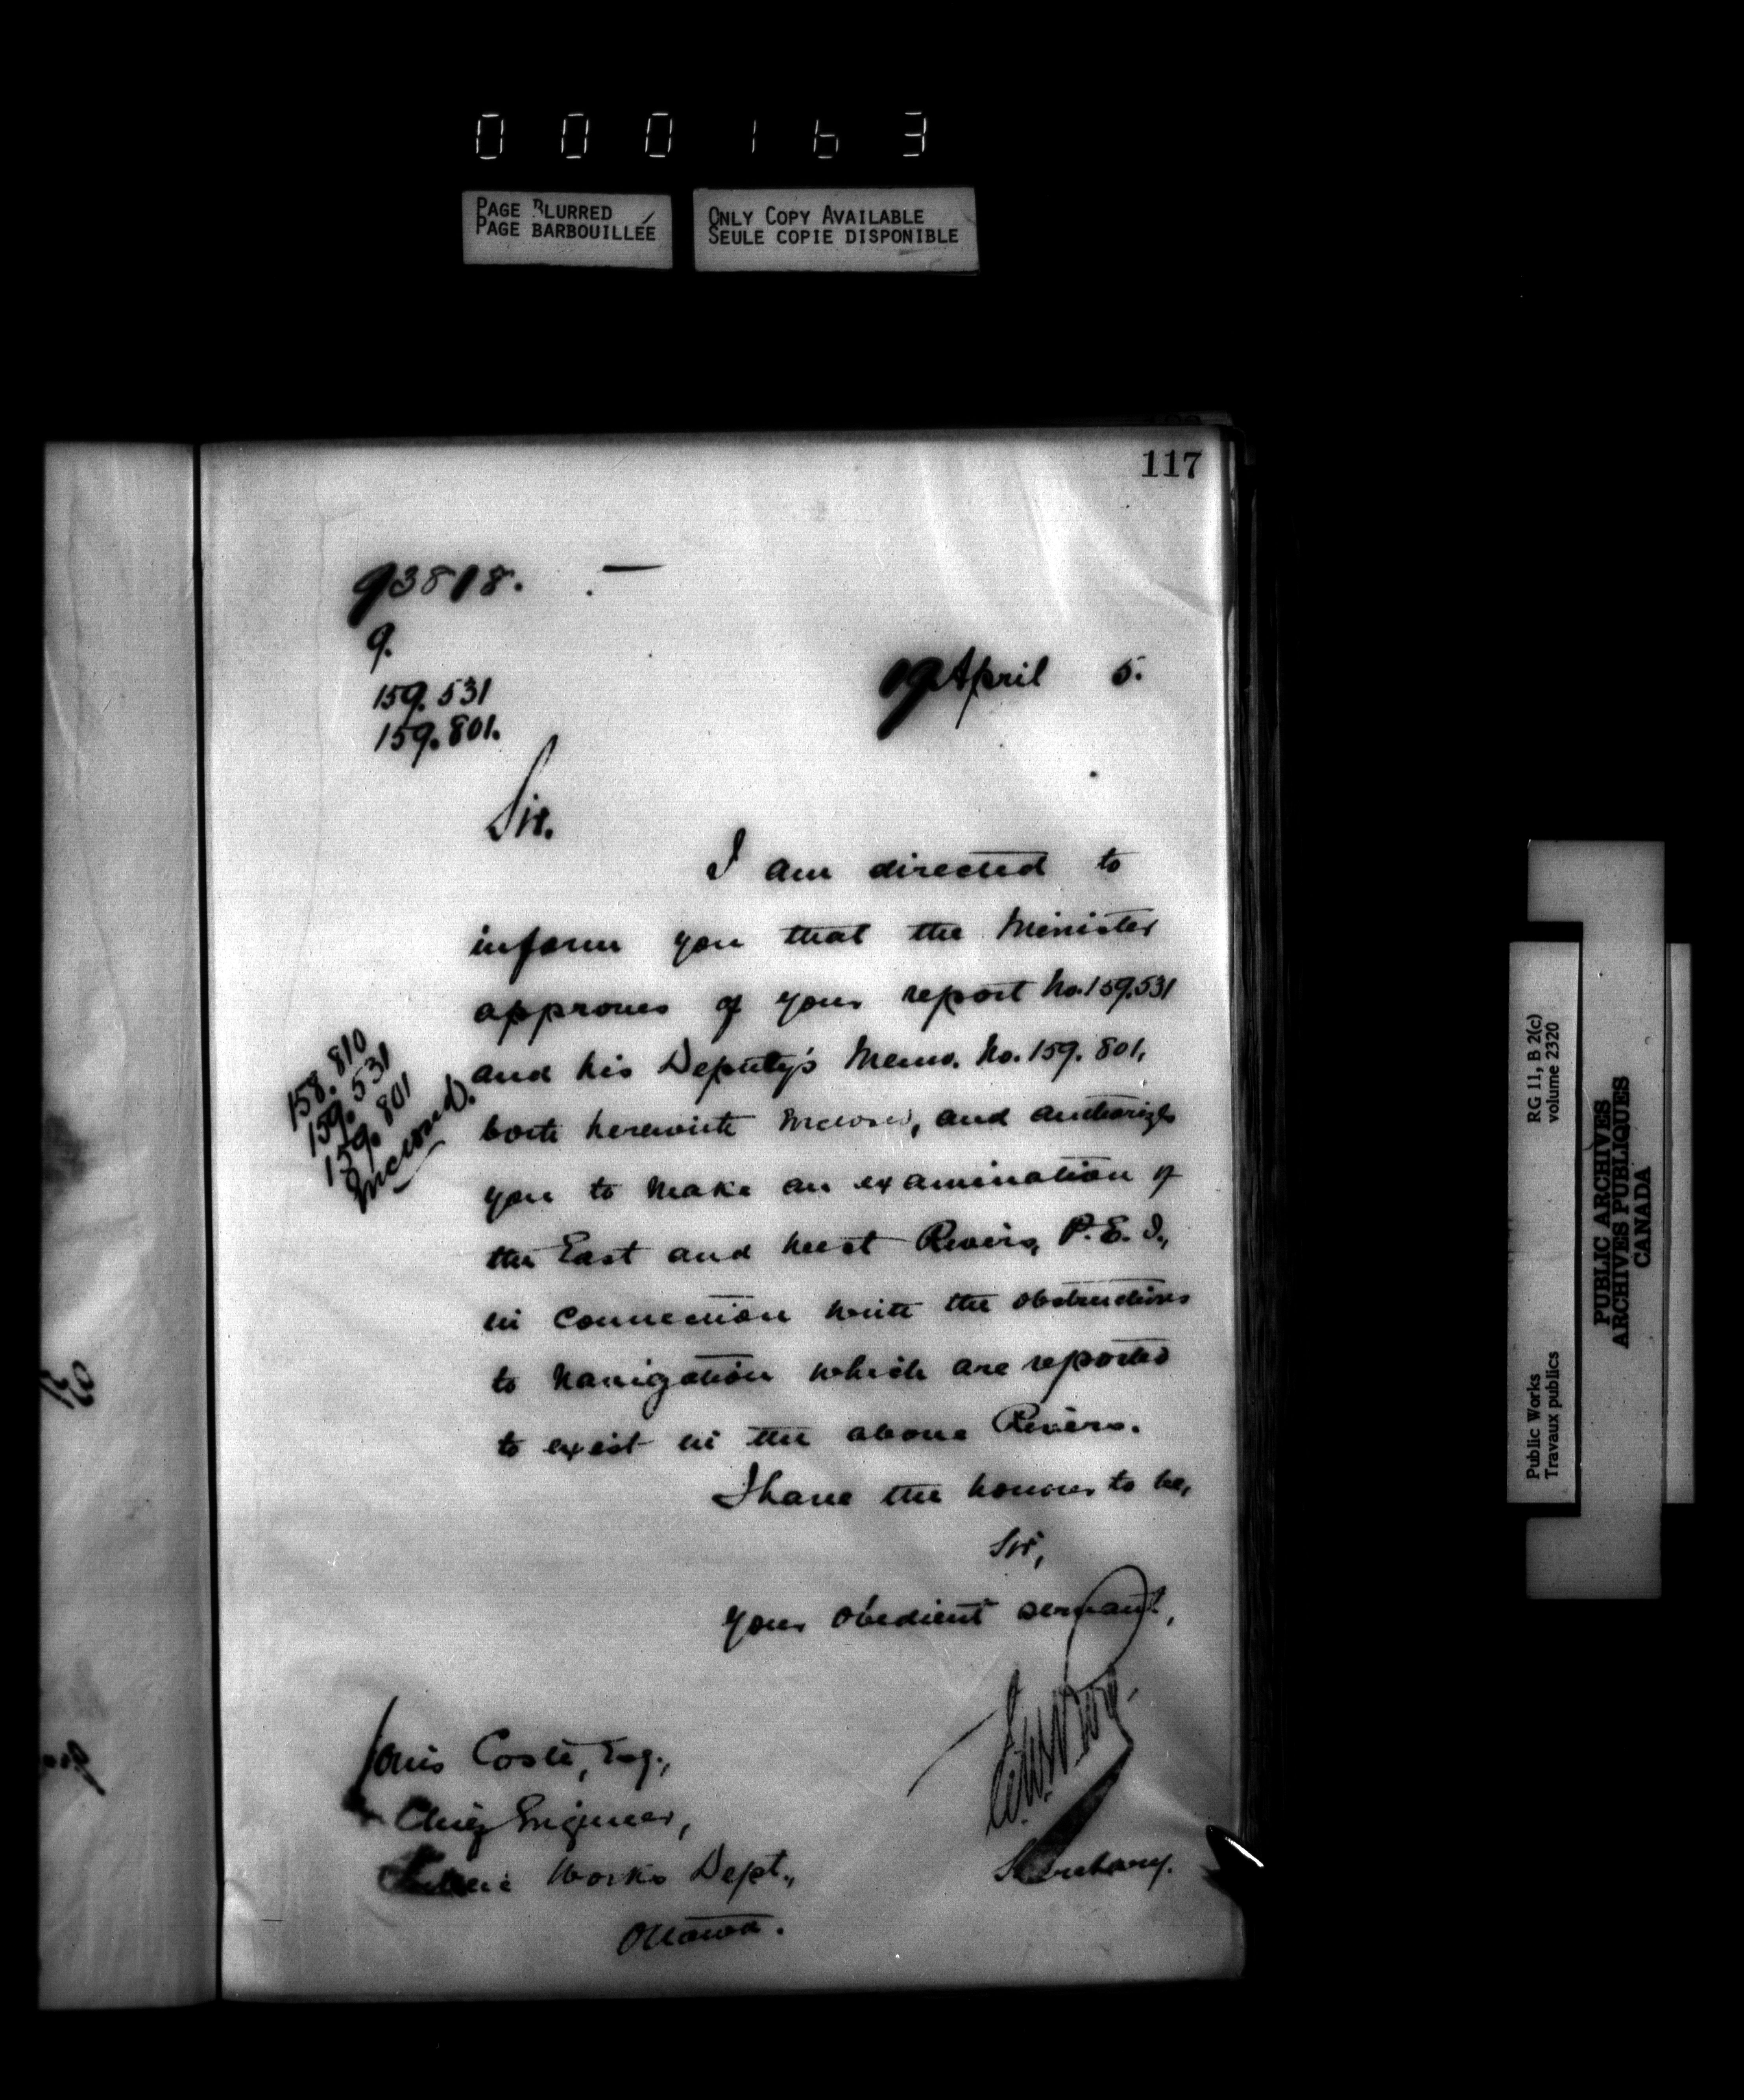 000163
PAGE BLURRED
PAGE BARBOUILLÉE
ONLY COPY AVAILABLE
SEULE COPIE DISPONIBLE
117
93818.
9.
159.531
159.801.
19 April 5.
Sir.
I am directed to
inform you that the Minister
approves of your report No. 159.531
and his Deputy's Memo. No. 159.801,
both herewith Inclosed, and authorizes
you to make an examination of
the East and West Rivers, P.E.I.,
in connection with the obstructions
to navigation which are reported
to exist in the above Rivers.
158.810
159.531
159.801
Inclosed.
I have the honour to be,
Sir,
your obedient servant,
Secretary.
Louis Coste, Esq.,
Chief Engineer,
Public Works Dept.,
Ottawa.
Public Works
Travaux publics
RG 11, B 2(c)
volume 2320
PUBLIC ARCHIVES
ARCHIVES PUBLIQUES
CANADA